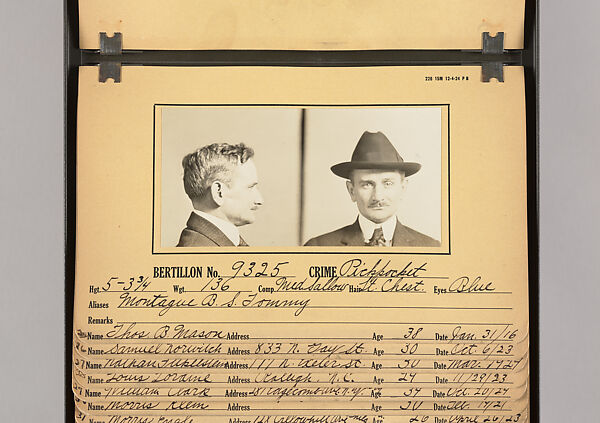 228 15M 12-4-24 P B
BERTILLON No. 9325 CRIME Pickpocket
Hgt. 5-3¾ Wgt. 136 Comp. Med Sallow Hair St Chest. Eyes Blue
Aliases Montague B. S. Tommy
Remarks
Name Thos. B Mason Address Age 38 Date Jan. 31/16
Name Samuel Norwitch Address 833 N. Gay St. Age 30 Date Oct. 6/23
Name Nathan Address 111 N. St. Age 30 Date Mar. 17-27
Name Louis Loraine Address Raleigh, N.C. Age 27 Date 11/29/23
Name William Address Ave N.Y. Age 37 Date Oct. 20/27
Name Morris Klein Address Age 30 Date Feb. 17/21
Name Morris Address Age 26 Date April 26/23